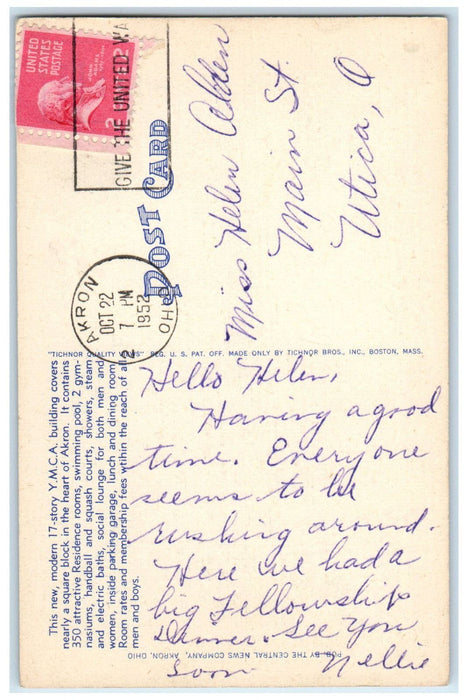 UNITED
STATES
POSTAGE
JOHN
ADAMS
2
GIVE THE UNITED WA
AKRON
OCT 22
7 PM
1952
OHIO
POST CARD
Miss Helen Alden
Main St.
Utica, O
"TICHNOR QUALITY VIEWS" REG. U. S. PAT. OFF. MADE ONLY BY TICHNOR BROS., INC., BOSTON, MASS.
This new, modern 17-story Y.M.C.A. building covers
nearly a square block in the heart of Akron. It contains
350 attractive Residence rooms, swimming pool, 2 gym-
nasiums, handball and squash courts, showers, steam
and electric baths, social lounge for both men and
women, inside parking garage, lunch and dining room.
Room rates and membership fees wtihin the reach of all
men and boys.
Hello Helen,
Having a good
time. Everyone
seems to be
rushing around.
Here we had a
big Fellowship
Dinner. See You
Soon Nellie
PUB. BY THE CENTRAL NEWS COMPANY, AKRON, OHIO